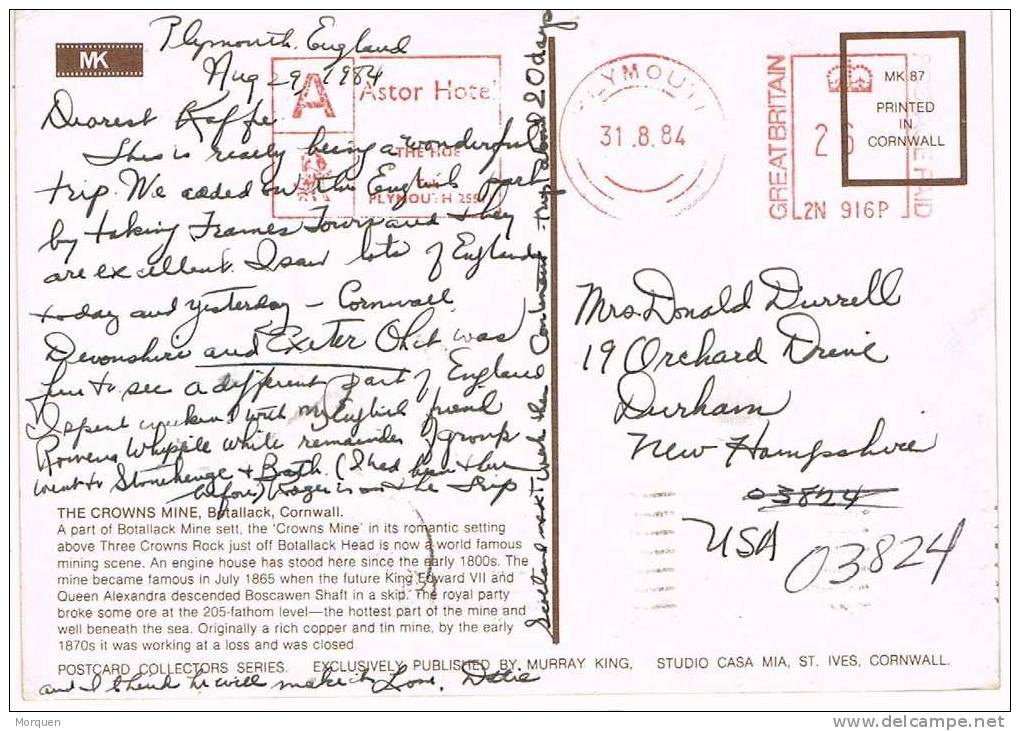 MK
Plymouth, England
Aug 29, 1984
A Astor Hotel
THE HOE
PLYMOUTH 255
PLYMOUTH
31.8.84
GREAT BRITAIN
26
POSTAGE PAID
LZN 916P
MK 87
PRINTED
IN
CORNWALL
Dearest
This is really being a wonderful
trip. We added on the English part
by taking Frames Tours and they
are excellent. I saw lots of England
today and yesterday – Cornwall
Devonshire and Exeter Oh it was
fun to see a different part of England
I spent weekend with my English friend
Rowena Whipple while remainder of group
went to Stonehenge + Bath. (I had been there
before) Roger is on the trip
and I think he will make it. Love,
Scotland next week then Continent - trip about 20 days
Mrs. Donald Durrell
19 Orchard Drive
Durham
New Hampshire
03824
USA
03824
THE CROWNS MINE, Botallack, Cornwall.
A part of Botallack Mine sett, the 'Crowns Mine' in its romantic setting
above Three Crowns Rock just off Botallack Head is now a world famous
mining scene. An engine house has stood here since the early 1800s. The
mine became famous in July 1865 when the future King Edward VII and
Queen Alexandra descended Boscawen Shaft in a skip. The royal party
broke some ore at the 205-fathom level—the hottest part of the mine and
well beneath the sea. Originally a rich copper and tin mine, by the early
1870s it was working at a loss and was closed.
POSTCARD COLLECTORS SERIES. EXCLUSIVELY PUBLISHED BY MURRAY KING, STUDIO CASA MIA, ST. IVES, CORNWALL.
Morquen
http://www.delcampe.net